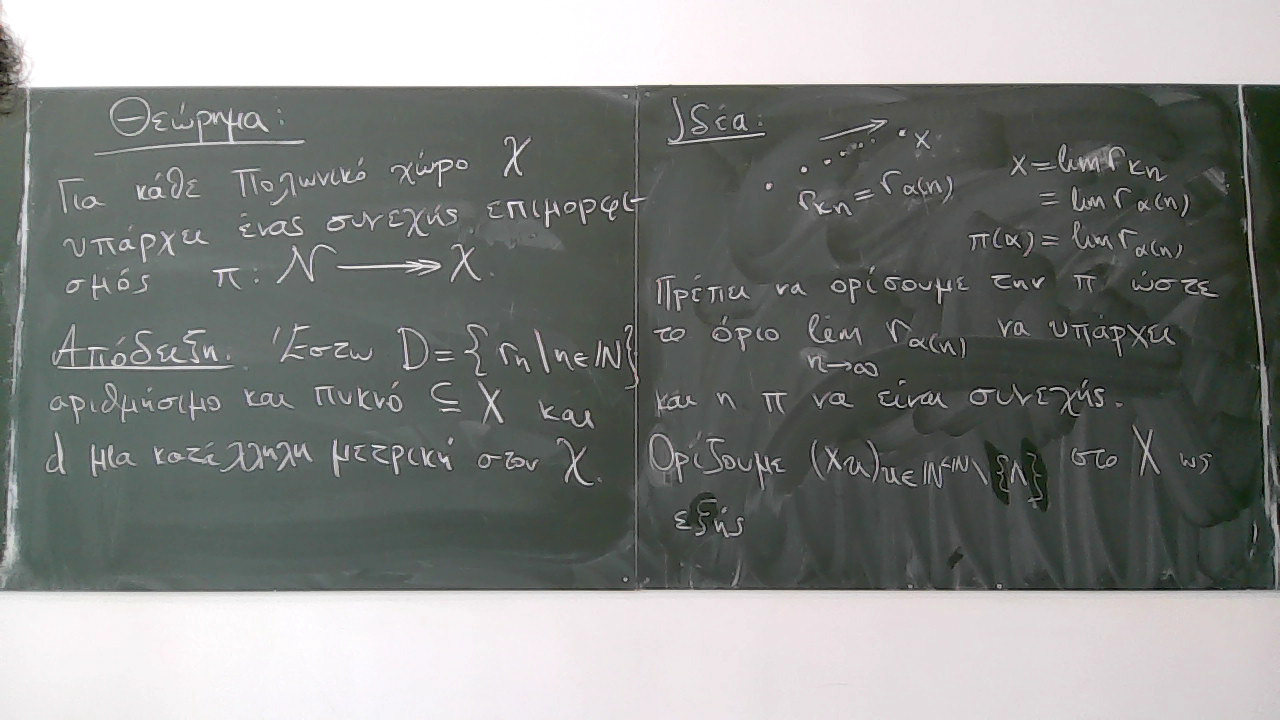 Θεώρημα:
Για κάθε Πολωνικό χώρο 𝒳
υπάρχει ένας συνεχής επιμορφι-
σμός π: 𝒩 ↠ 𝒳.
Απόδειξη. Έστω D = {rₙ | n ∈ ℕ}
αριθμήσιμο και πυκνό ⊆ 𝒳 και
d μια κατάλληλη μετρική στον 𝒳.
Ιδέα:
x
r_{k_n} = r_{α(n)}
x = lim r_{k_n}
= lim r_{α(n)}
π(α) = lim r_{α(n)}
Πρέπει να ορίσουμε την π ώστε
το όριο lim_{n→∞} r_{α(n)} να υπάρχει
και η π να είναι συνεχής.
Ορίζουμε (x_u)_{u∈ℕ^{<ℕ} \ {Λ}} στο 𝒳 ως
εξής